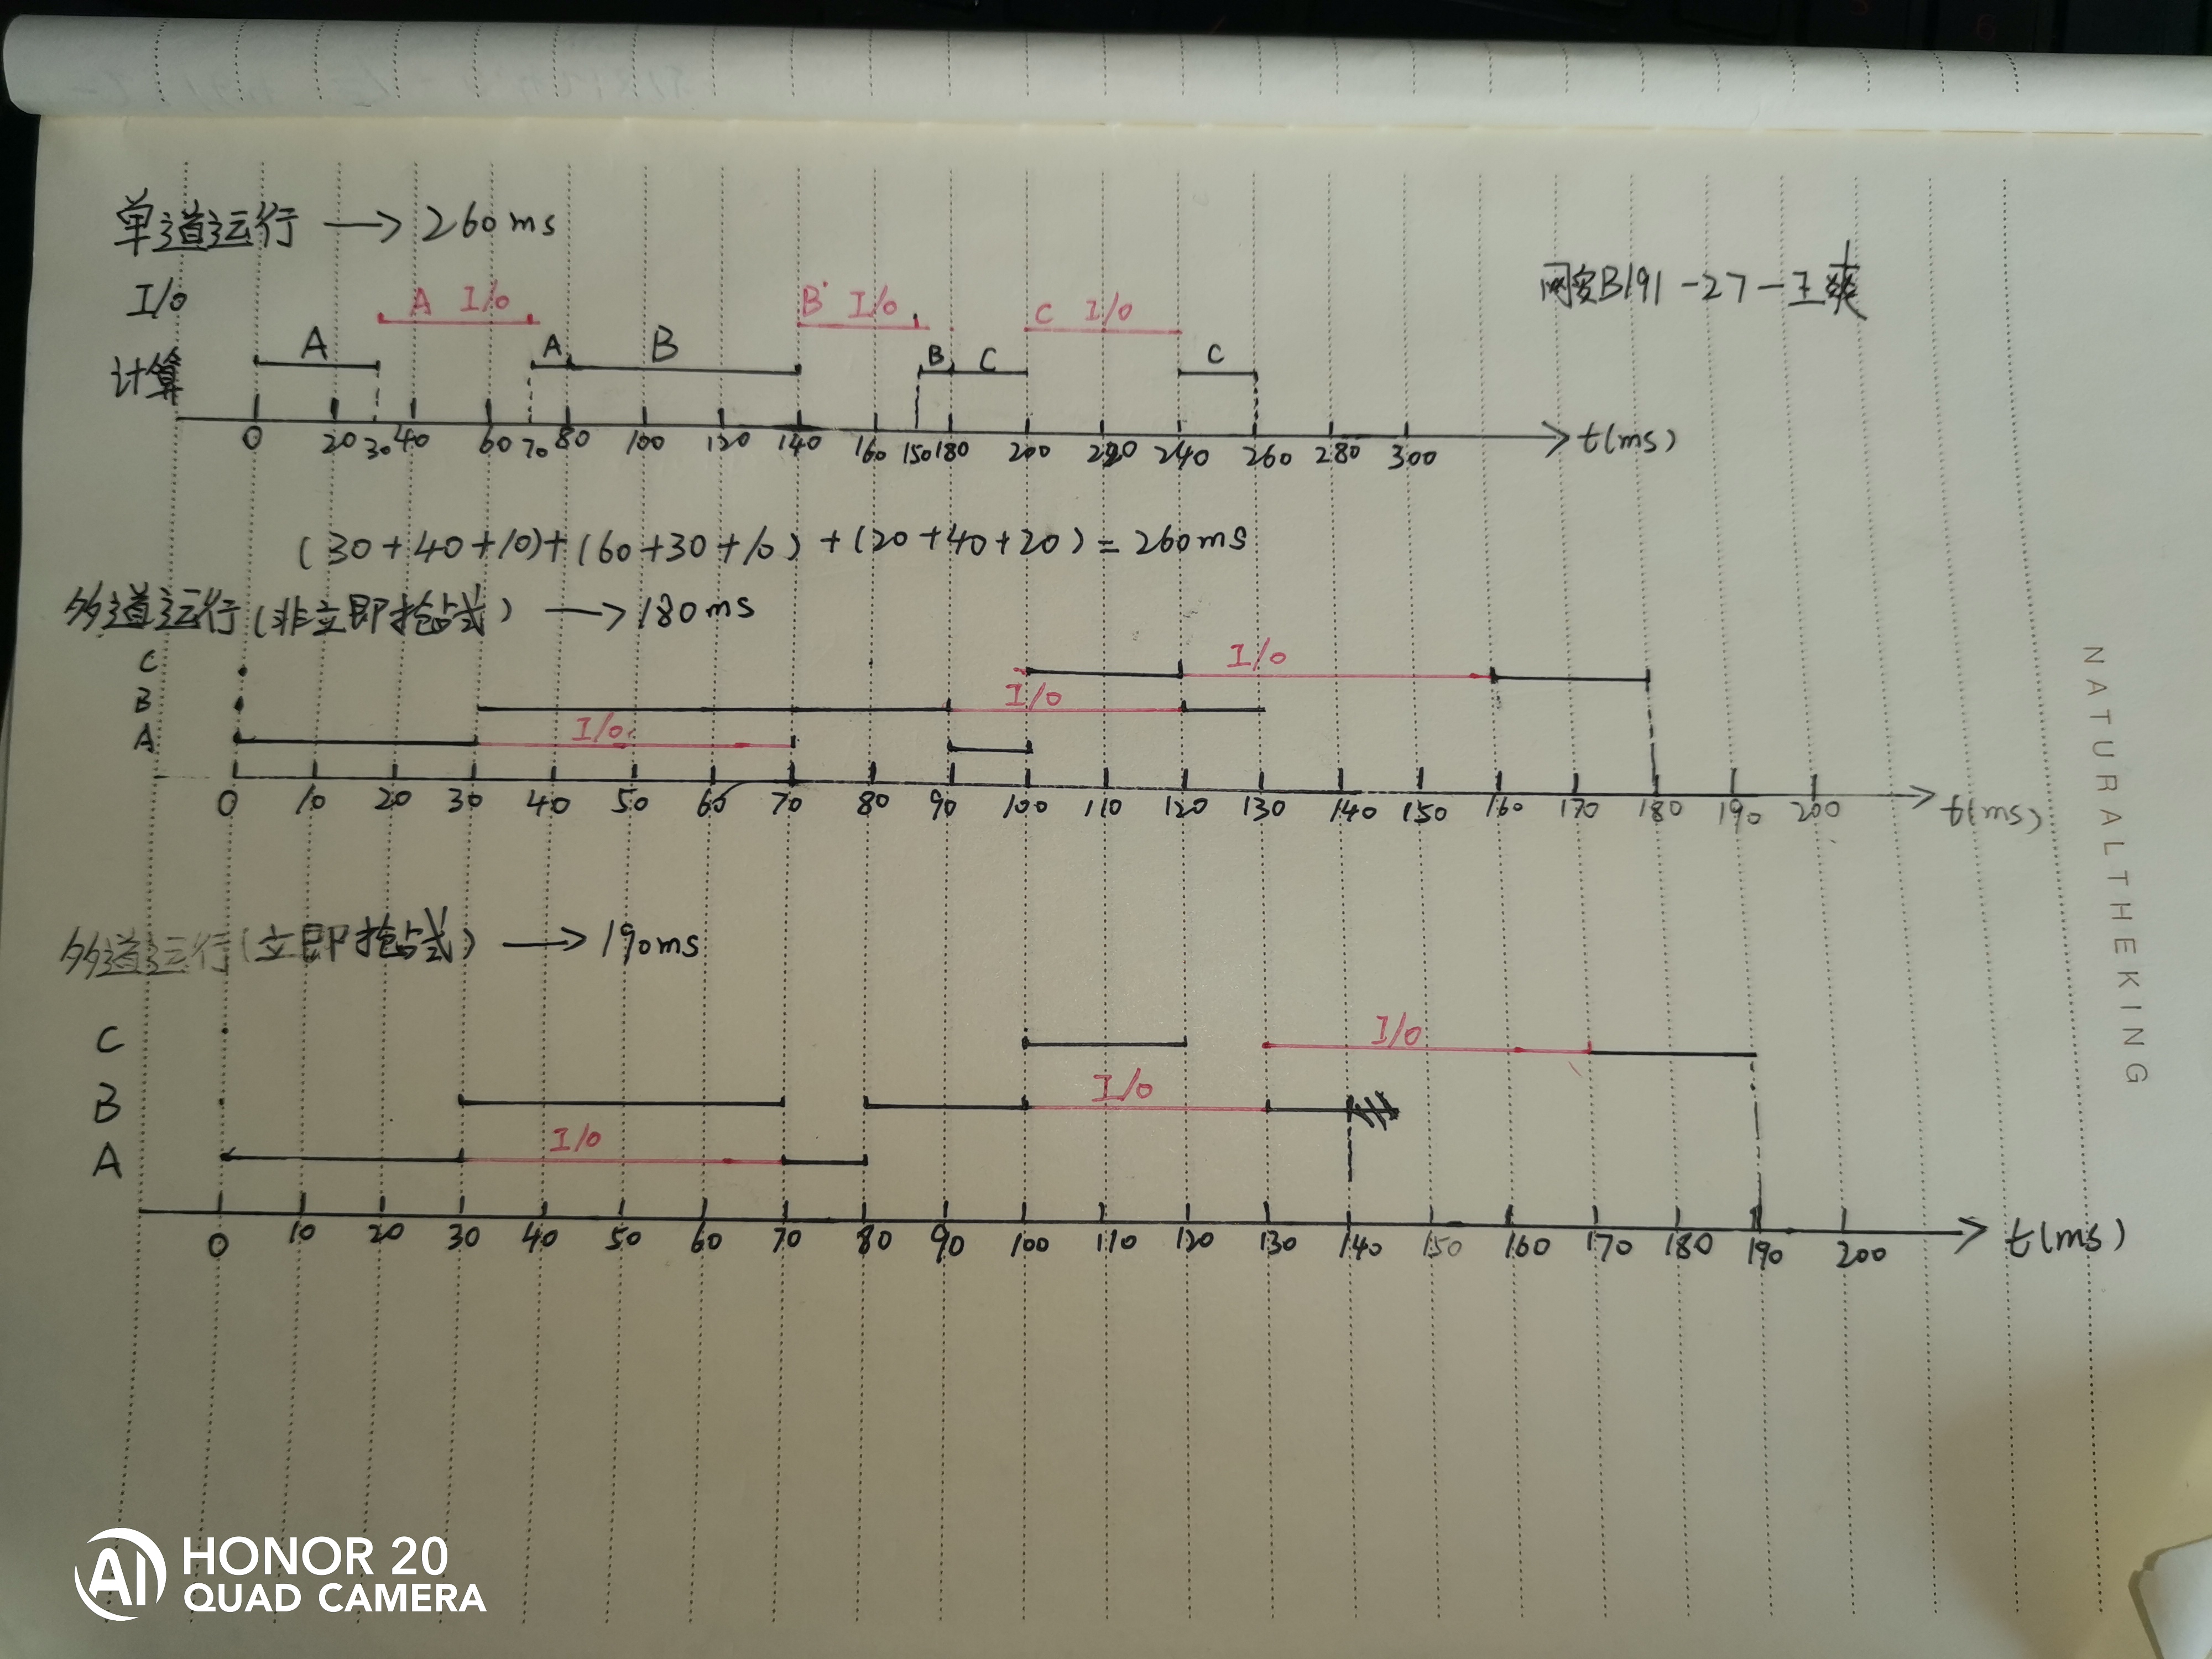 单道运行 → 260ms
网安B191-27-王爽
I/o
A I/o
B I/o
C I/o
计算
A
A
B
B
C
C
0 20 30 40 60 70 80 100 120 140 160 150 180 200 220 240 260 280 300 t(ms)
(30+40+10)+(60+30+10)+(20+40+20)=260ms
多道运行(非立即抢占式) → 180ms
C
I/o
B
I/o
A
I/o
0 10 20 30 40 50 60 70 80 90 100 110 120 130 140 150 160 170 180 190 200 t(ms)
多道运行(立即抢占式) → 190ms
C
I/o
B
I/o
A
I/o
0 10 20 30 40 50 60 70 80 90 100 110 120 130 140 150 160 170 180 190 200 t(ms)
NATURALTHEKING
AI HONOR 20
QUAD CAMERA